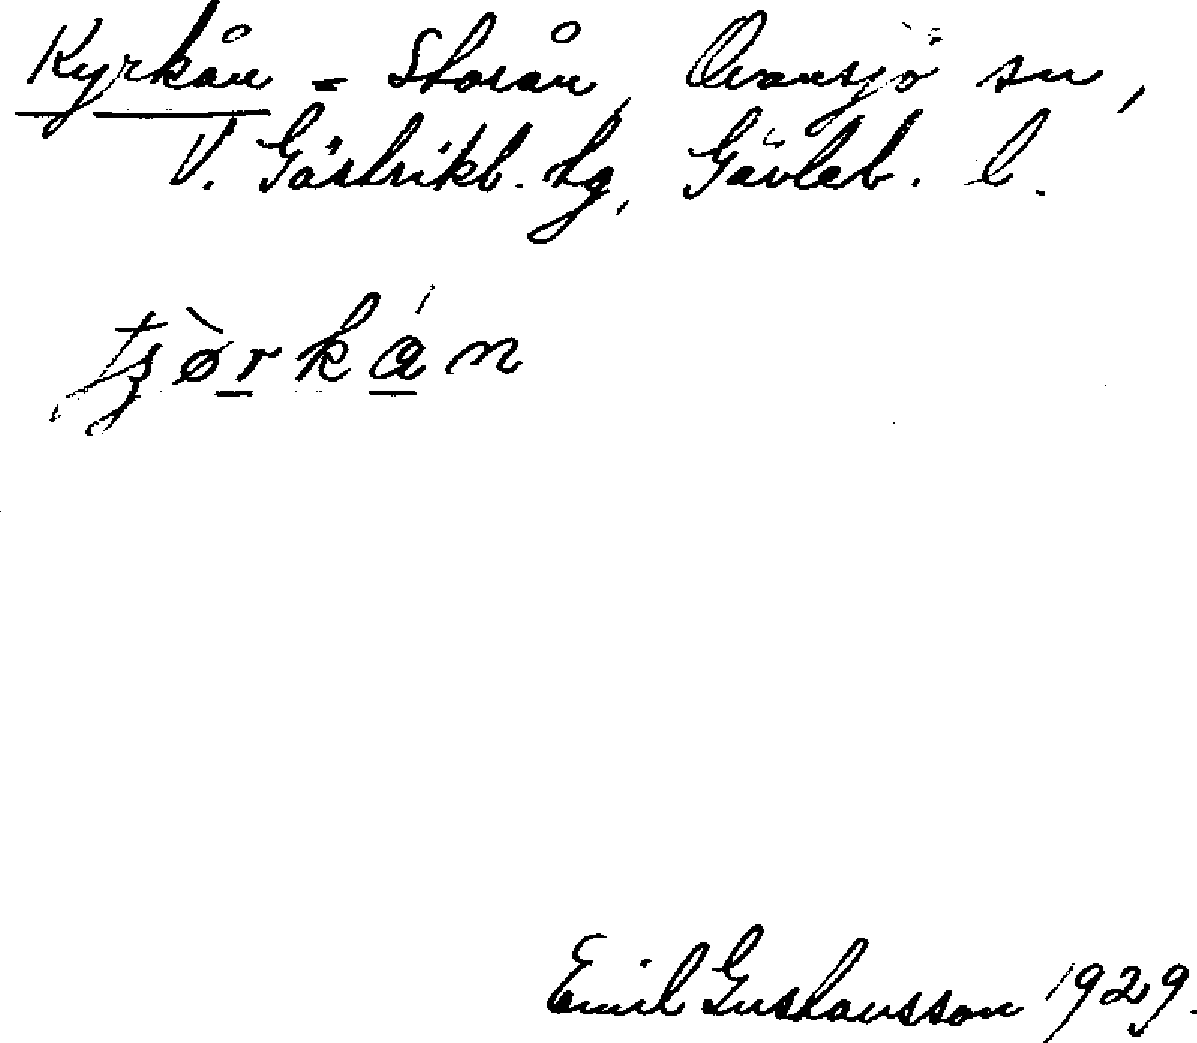 Kyrkån = Storån, Ovansjö sn,
V. Gästrikl. tg, Gävleb. l.
Emil Gustavsson 1929.